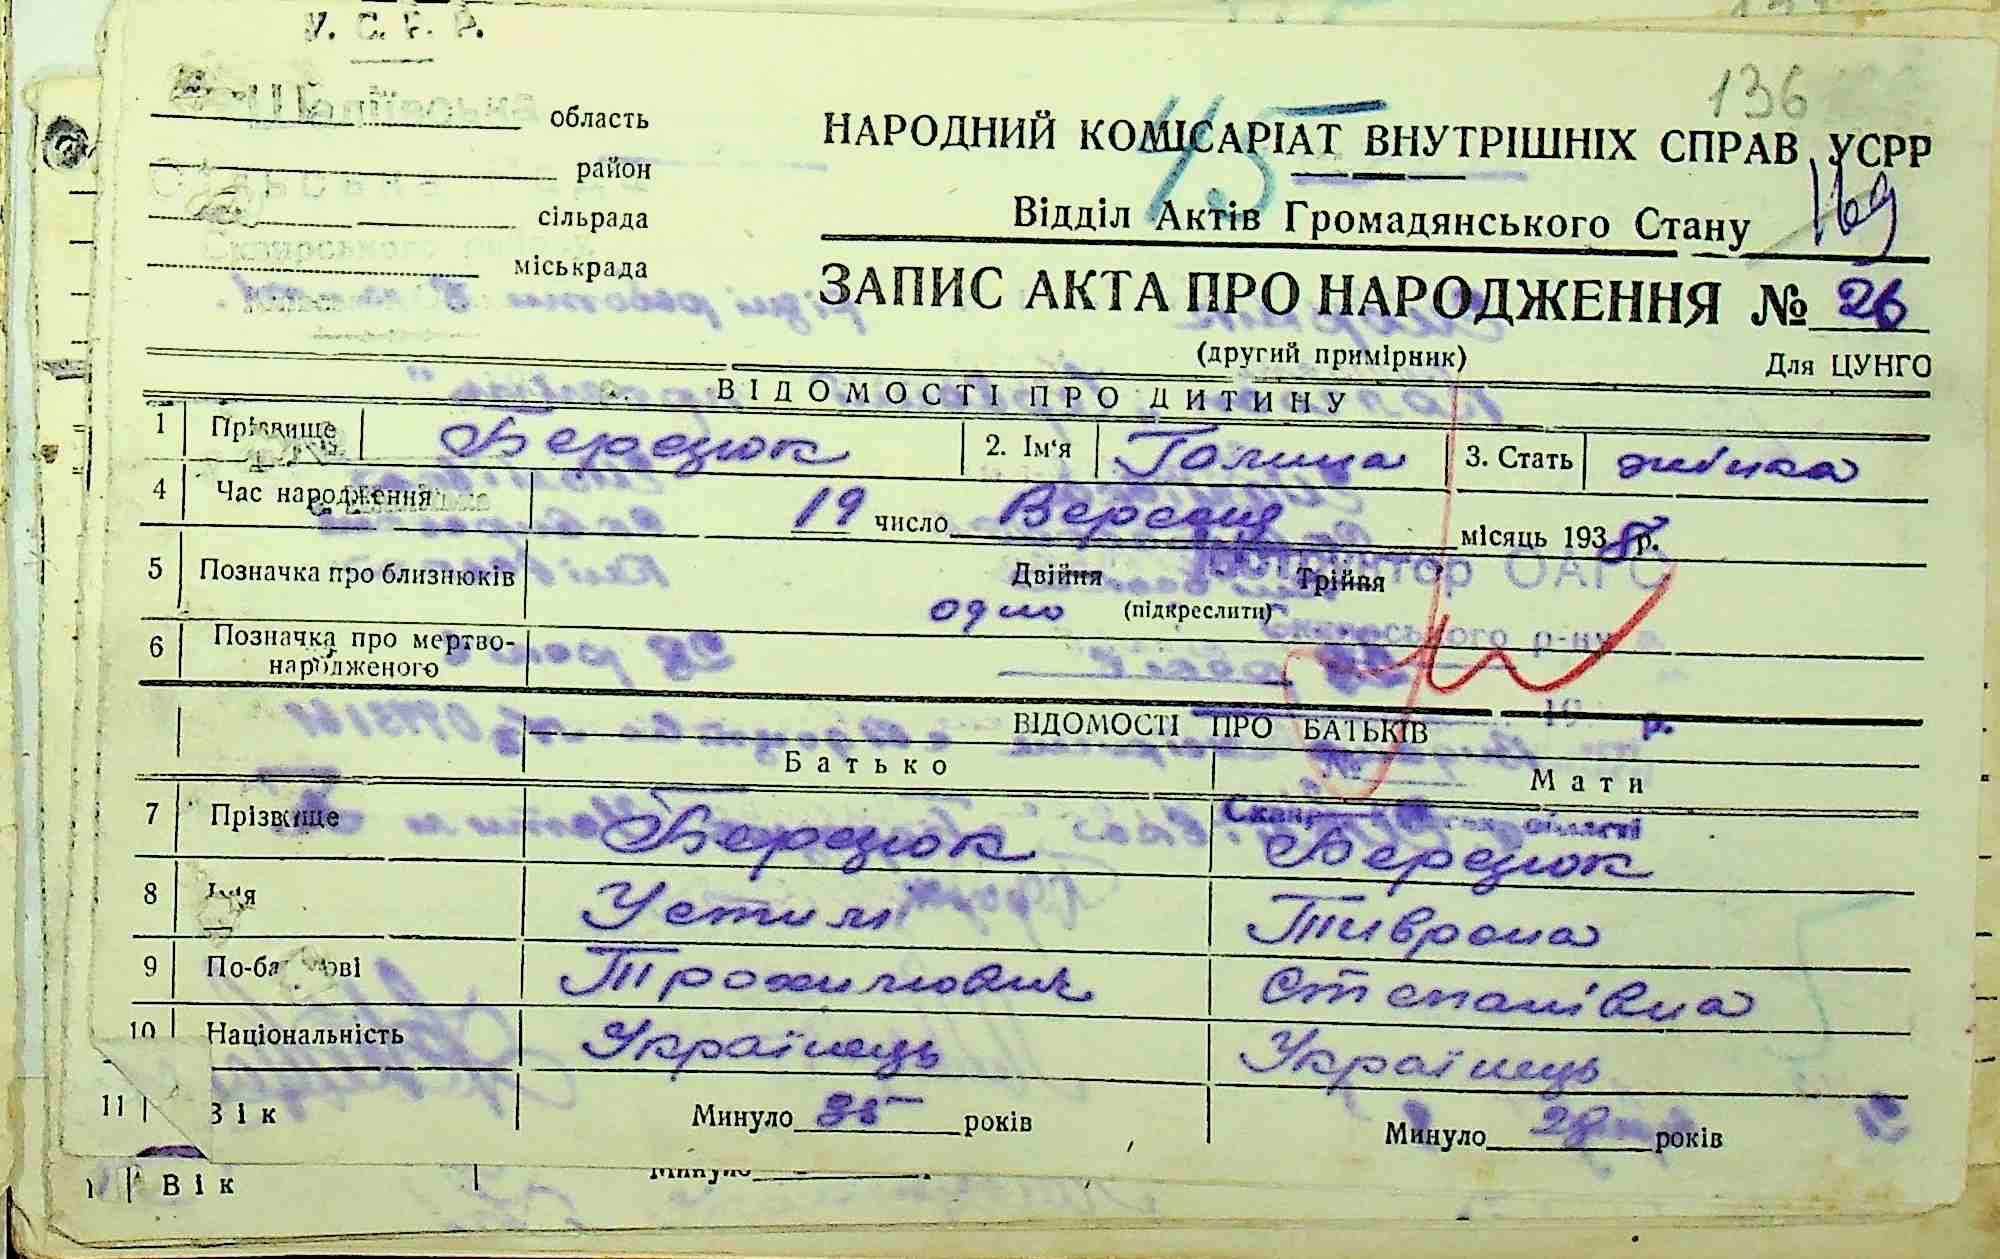 У. С. Р. Р.
136
область
район
сільрада
міськрада
45
НАРОДНИЙ КОМІСАРІАТ ВНУТРІШНІХ СПРАВ УСРР
Відділ Актів Громадянського Стану
169
ЗАПИС АКТА ПРО НАРОДЖЕННЯ № 26
(другий примірник) Для ЦУНГО
ВІДОМОСТІ ПРО ДИТИНУ
1 Прізвище Березюк 2. Ім'я Голина 3. Стать жінка
4 Час народження 19 число Вересня місяць 1938 р.
5 Позначка про близнюків Двійня Трійня
одно (підкреслити)
6 Позначка про мертво-
народженого
ВІДОМОСТІ ПРО БАТЬКІВ
Батько Мати
7 Прізвище Березюк Березюк
8 Ім'я Устим Тиврона
9 По-батькові Трохимович Степанівна
10 Національність Українець Українець
11 Вік Минуло 35 років Минуло 28 років
Вік Минуло